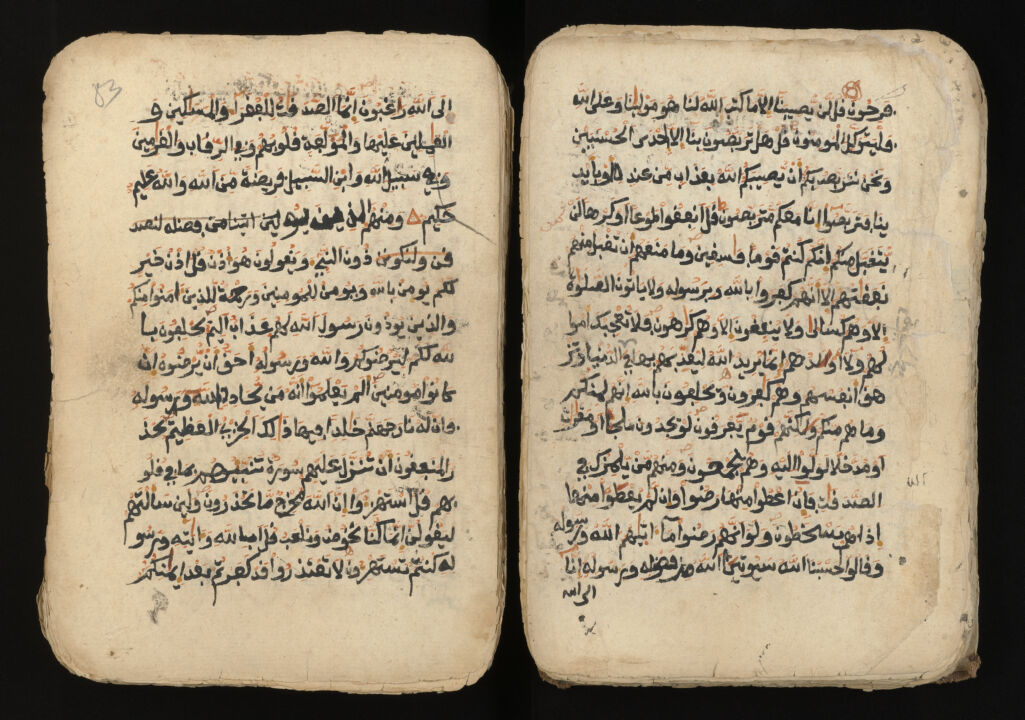 فرحون قل لن يصيبنا الا ما كتب الله لنا هو مولينا وعلى الله
فليتوكل المومنون قل هل تربصون بنا الا احدى الحسنيين
ونحن نتربص بكم ان يصيبكم الله بعذاب من عنده او بايد
ينا فتربصوا انا معكم متربصون قل انفقوا طوعا او كرها لن
يتقبل منكم انكم كنتم قوما فسقين وما منعهم ان تقبل منهم
نفقتهم الا انهم كفروا بالله وبرسوله ولا ياتون الصلوة
الا وهم كسالى ولا ينفقون الا وهم كرهون فلا تعجبك امو
لهم ولا اولدهم انما يريد الله ليعذبهم بها في الدنيا وتز
هق انفسهم وهم كفرون ويحلفون بالله انهم لمنكم
وما هم منكم ولكنهم قوم يفرقون لو يجدون ملجا او مغرت
او مدخلا لولوا اليه وهم يجمحون ومنهم من يلمزك في
الصدقت فان اعطوا منها رضوا وان لم يعطوا منها
اذا هم يسخطون ولو انهم رضوا ما اتيهم الله ورسوله
وقالوا حسبنا الله سيوتينا الله من فضله ورسوله انا
الى الله
83
الى الله راغبون انما الصدقت للفقرا والمسكين و
العملين عليها والمولفة قلوبهم وفي الرقاب والغرمين
وفي سبيل الله وابن السبيل فريضة من الله والله عليم
حكيم ومنهم لين اتينا من فضله لنصد
قن ولنكونن ذون النبي ويقولون هو اذن قل اذن خير
لكم يومن بالله ويومن للمومنين ورحمة للذين امنوا منكم
والذين يوذون رسول الله لهم عذاب اليم يحلفون با
لله لكم ليرضوكم والله ورسوله احق ان يرضوه ان
كانوا مومنين الم يعلموا انه من يحادد الله ورسوله
فان له نار جهنم خلدا فيها ذلك الخزي العظيم يحذ
ر المنفقون ان تنزل عليهم سورة تنبيهم بما في قلو
بهم قل استهزوا ان الله مخرج ما تحذرون ولين سالتهم
ليقولن انما كنا نخوض ونلعب قل ابالله وايته ورسو
له كنتم تستهزون لا تعتذروا قد كفرتم بعد ايمنكم